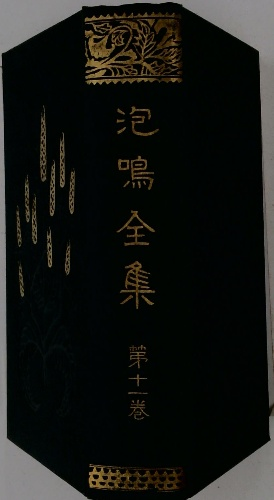 泡鳴全集
第十一卷